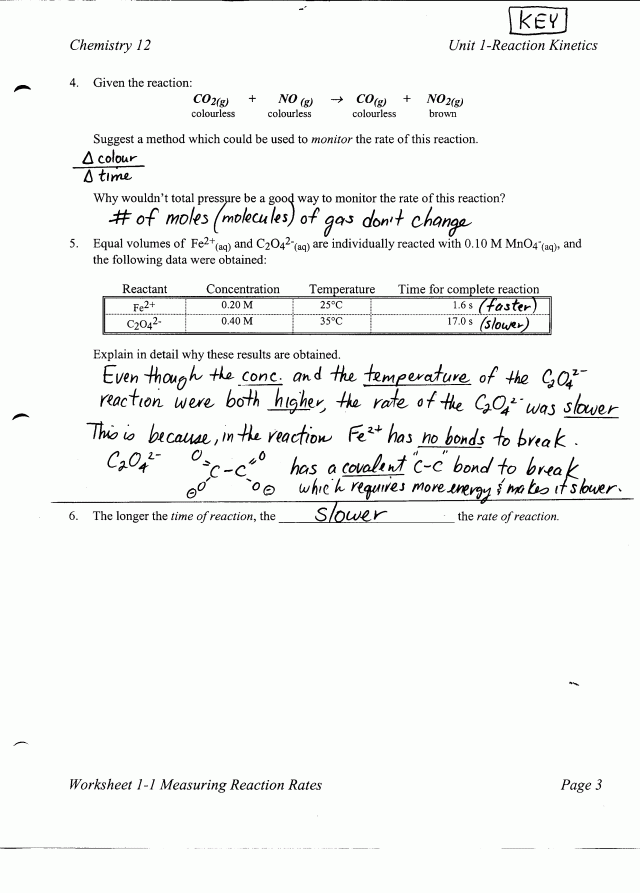 KEY
Chemistry 12 Unit 1-Reaction Kinetics
4. Given the reaction:
CO2(g) + NO (g) → CO(g) + NO2(g)
colourless colourless colourless brown
Suggest a method which could be used to monitor the rate of this reaction.
Δ colour
Δ time
Why wouldn't total pressure be a good way to monitor the rate of this reaction?
# of moles (molecules) of gas don't change
5. Equal volumes of Fe2+(aq) and C2O42-(aq) are individually reacted with 0.10 M MnO4-(aq), and
the following data were obtained:
Reactant Concentration Temperature Time for complete reaction
Fe2+ 0.20 M 25°C 1.6 s (faster)
C2O42- 0.40 M 35°C 17.0 s (slower)
Explain in detail why these results are obtained.
Even though the conc. and the temperature of the C2O42-
reaction were both higher, the rate of the C2O42- was slower
This is because, in the reaction Fe2+ has no bonds to break.
C2O42- O=C-C=O has a covalent "C-C" bond to break
⊖O O⊖ which requires more energy & makes it slower.
6. The longer the time of reaction, the slower the rate of reaction.
Worksheet 1-1 Measuring Reaction Rates Page 3